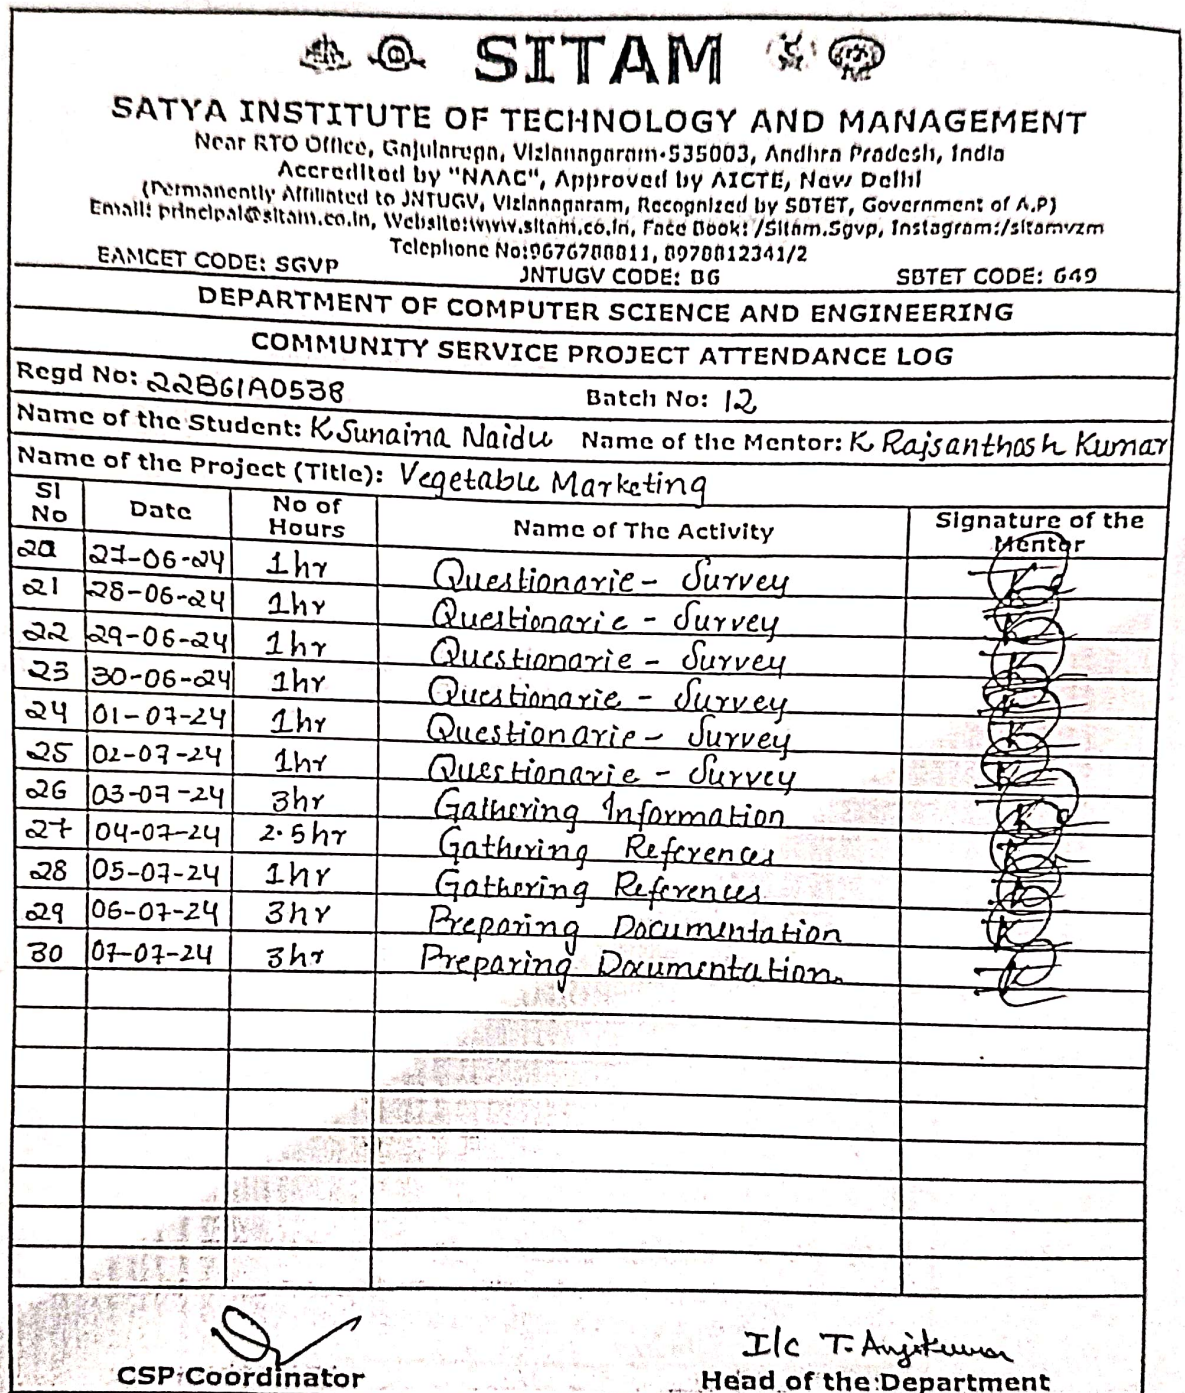 SITAM
SATYA INSTITUTE OF TECHNOLOGY AND MANAGEMENT
Near RTO Office, Gajularega, Vizianagaram-535003, Andhra Pradesh, India
Accredited by "NAAC", Approved by AICTE, New Delhi
(Permanently Affiliated to JNTUGV, Vizianagaram, Recognized by SBTET, Government of A.P)
Email: principal@sitam.co.in, Website:www.sitam.co.in, Face Book: /Sitam.Sgvp, Instagram:/sitamvzm
Telephone No:9676788811, 8978812341/2
EAMCET CODE: SGVP JNTUGV CODE: BG SBTET CODE: 649
DEPARTMENT OF COMPUTER SCIENCE AND ENGINEERING
COMMUNITY SERVICE PROJECT ATTENDANCE LOG
Regd No: 22B61A0538 Batch No: 12
Name of the Student: K Sunaina Naidu Name of the Mentor: K Rajsanthosh Kumar
Name of the Project (Title): Vegetable Marketing
Sl No Date No of Hours Name of The Activity Signature of the Mentor
20 27-06-24 1hr Questionarie - Survey
21 28-06-24 1hr Questionarie - Survey
22 29-06-24 1hr Questionarie - Survey
23 30-06-24 1hr Questionarie - Survey
24 01-07-24 1hr Questionarie - Survey
25 02-07-24 1hr Questionarie - Survey
26 03-07-24 3hr Gathering Information
27 04-07-24 2.5hr Gathering References
28 05-07-24 1hr Gathering References
29 06-07-24 3hr Preparing Documentation
30 07-07-24 3hr Preparing Documentation.
I/c T. Anjikumar
CSP Coordinator Head of the Department